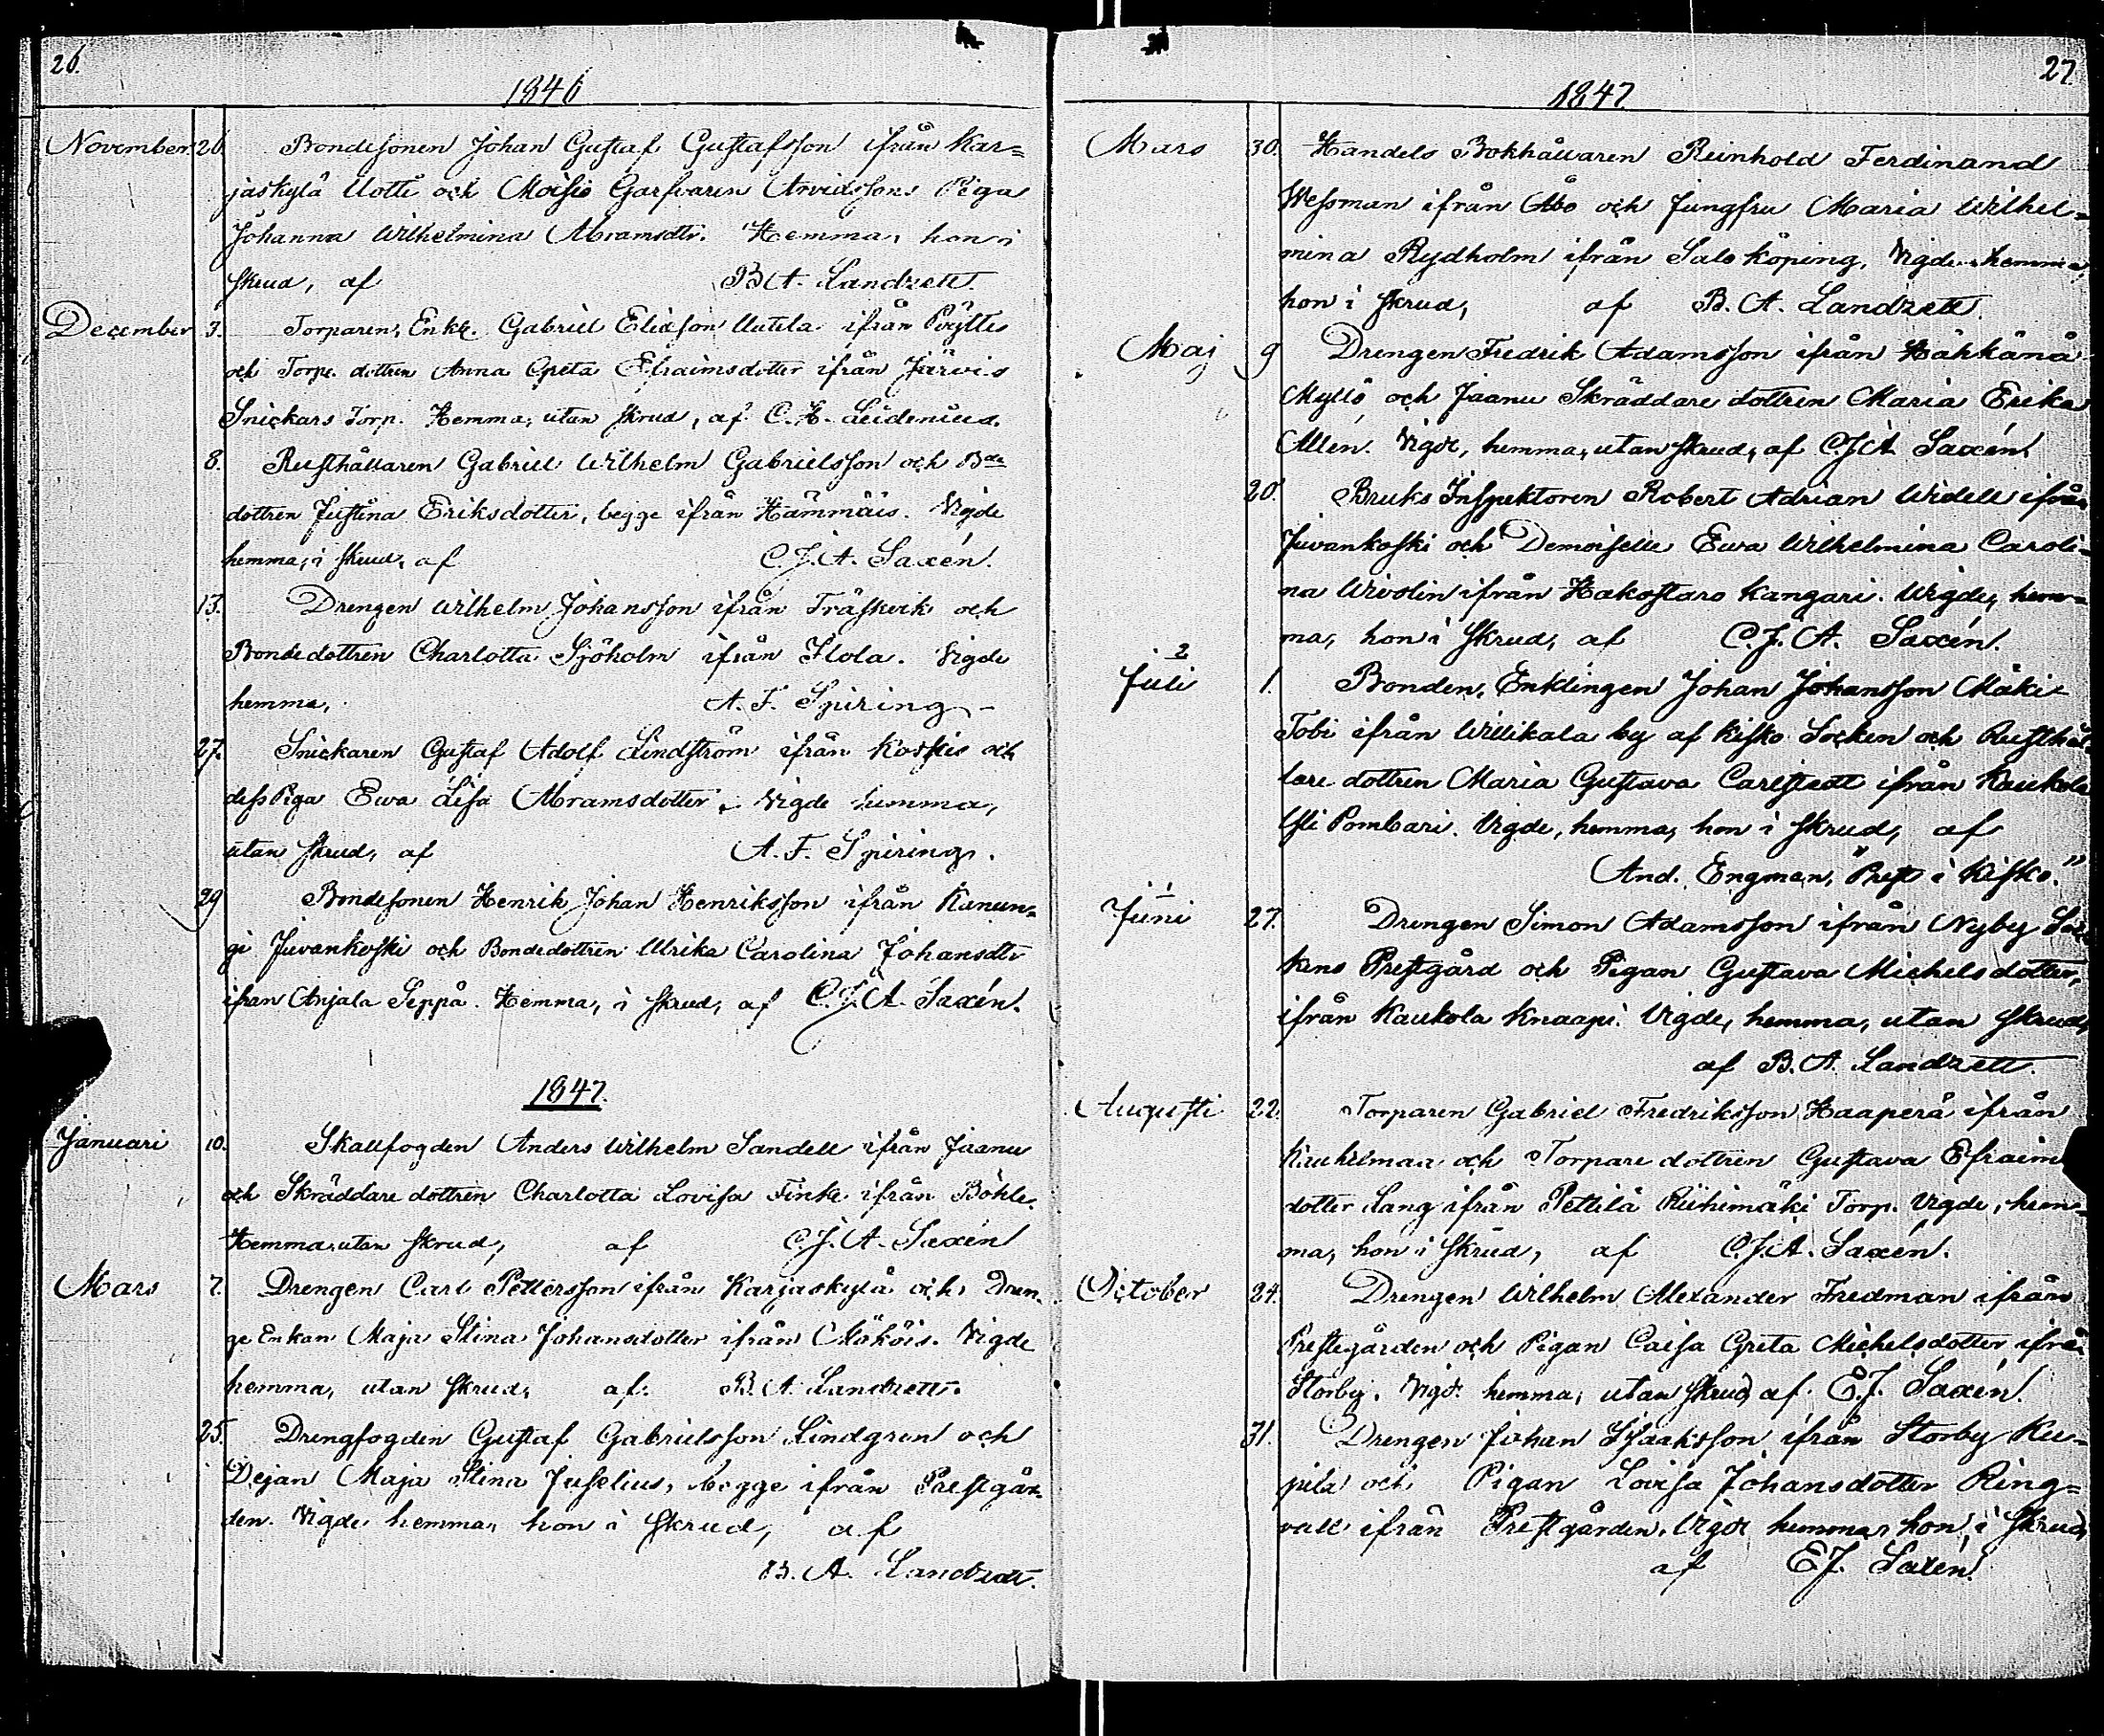 26.
1846
November 26 Bondesonen Johan Gustaf Gustafsson ifrån Kar=
jaskylä Uotti och Moisio Garfvaren Arvidssons Piga
Johanna Wilhelmina Abramsdtr. Hemma, hon i
skrud, af B A. Landzett.
December 3. Torparen, Enkl. Gabriel Eliasson Uutela ifrån Pöytis
och Torp. dottren Anna Greta Efraimsdotter ifrån Järvis
Snickars Torp. Hemma, utan skrud, af C. H. Leidenius.
8. Rusthållaren Gabriel Wilhelm Gabrielsson och Bde
dottren Justina Eriksdotter, begge ifrån Hämmäis. Vigde
hemma, i skrud, af C. J. A. Saxén.
13. Drengen Wilhelm Johansson ifrån Träskvik och
Bondedottren Charlotta Sjöholm ifrån Ilola. Vigde
hemma, A. F. Spiring
27. Snickaren Gustaf Adolf Lindström ifrån Koskis och
dess Piga Ewa Lisa Abramsdotter. Vigde hemma,
utan skrud, af A. F. Spiring.
29 Bondesonen Henrik Johan Henriksson ifrån Kanun=
gi Juvankoski och Bondedottren Ulrika Carolina Johansdtr
ifrån Anjala Seppä. Hemma, i skrud, af C. J. A. Saxén.
1847.
Januari 10. Skallfogden Anders Wilhelm Sandell ifrån Jaanu
och Skräddare dottren Charlotta Lovisa Finke ifrån Böhle.
Hemma, utan skrud, af C. J. A. Saxén
Mars 7. Drengen Carl Pettersson ifrån Karjaskylä och Dren=
ge Enkan Maja Stina Johansdotter ifrån Mököis. Vigde
hemma, utan skrud, af B. A. Landzett.
25. Drengfogden Gustaf Gabrielsson Lindgren och
Dejan Maja Stina Juselius, begge ifrån Prestgår=
den. Vigde hemma, hon i skrud, af
B. A. Landzett.
27
1847
Mars 30. Handels Bokhållaren Reinhold Ferdinand
Wessman ifrån Åbo och Jungfru Maria Wilhel=
mina Rydholm ifrån Salo köping, Vigde hemma,
hon i skrud, af B. A. Landzett.
Maj 9 Drengen Fredrik Adamsson ifrån Hähkänä
Myllö och Jaanu Skräddare dottren Maria Erika
Allén. Vigde, hemma, utan skrud, af C. J. A. Saxén.
20. Bruks Inspektoren Robert Adrian Widell ifrån
Juvankoski och Demoiselle Ewa Wilhelmina Caroli=
na Wivolin ifrån Hakostaro Kangari. Vigde, hem=
ma, hon i skrud, af C. J. A. Saxén.
2
Juli 1. Bonden, Enklingen Johan Johansson Mäki
Tobi ifrån Willikala by af Kisko Socken och Rusthål
lare dottren Maria Gustava Carlstedt ifrån Kaukola
Yli Pombari. Vigde, hemma, hon i skrud, af
And. Engman, "Prest i Kisko."
1
Juni 27. Drengen Simon Adamsson ifrån Nyby Soc
kens Prestgård och Pigan Gustava Michelsdotter,
ifrån Kaukola Knaapi. Vigde, hemma, utan skrud,
af B. A. Landzett.
Augusti 22. Torparen Gabriel Fredriksson Haaperä ifrån
Kaukilmaa och Torpare dottren Gustava Efraims
dotter Lang ifrån Pettilä Riihimäki Torp. Vigde, hem=
ma, hon i skrud, af C. J. A. Saxén.
October 24. Drengen Wilhelm Alexander Fredman ifrån
Prestegården och Pigan Caisa Greta Michelsdotter ifrån
Storby. Vigde hemma, utan skrud, af E. J. Saxén.
31. Drengen Johan Isaaksson ifrån Storby Ku=
pila och Pigan Lovisa Johansdotter Ring=
vall ifrån Prestgården, Vigde hemma, hon i skrud,
af E. J. Saxén.